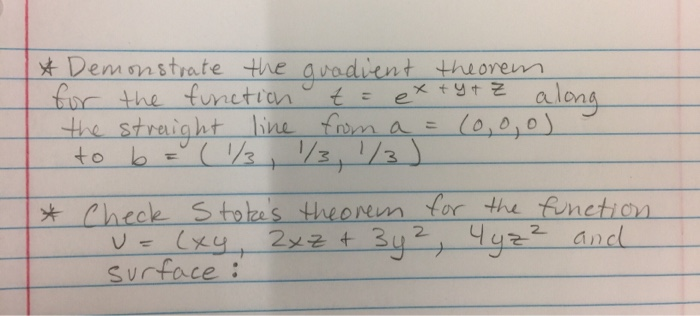 * Demonstrate the gradient theorem
for the function t = e^x + y + z along
the straight line from a = (0,0,0)
to b = (1/3, 1/3, 1/3)
* Check Stoke's theorem for the function
v = (xy, 2xz + 3y², 4yz² and
surface: